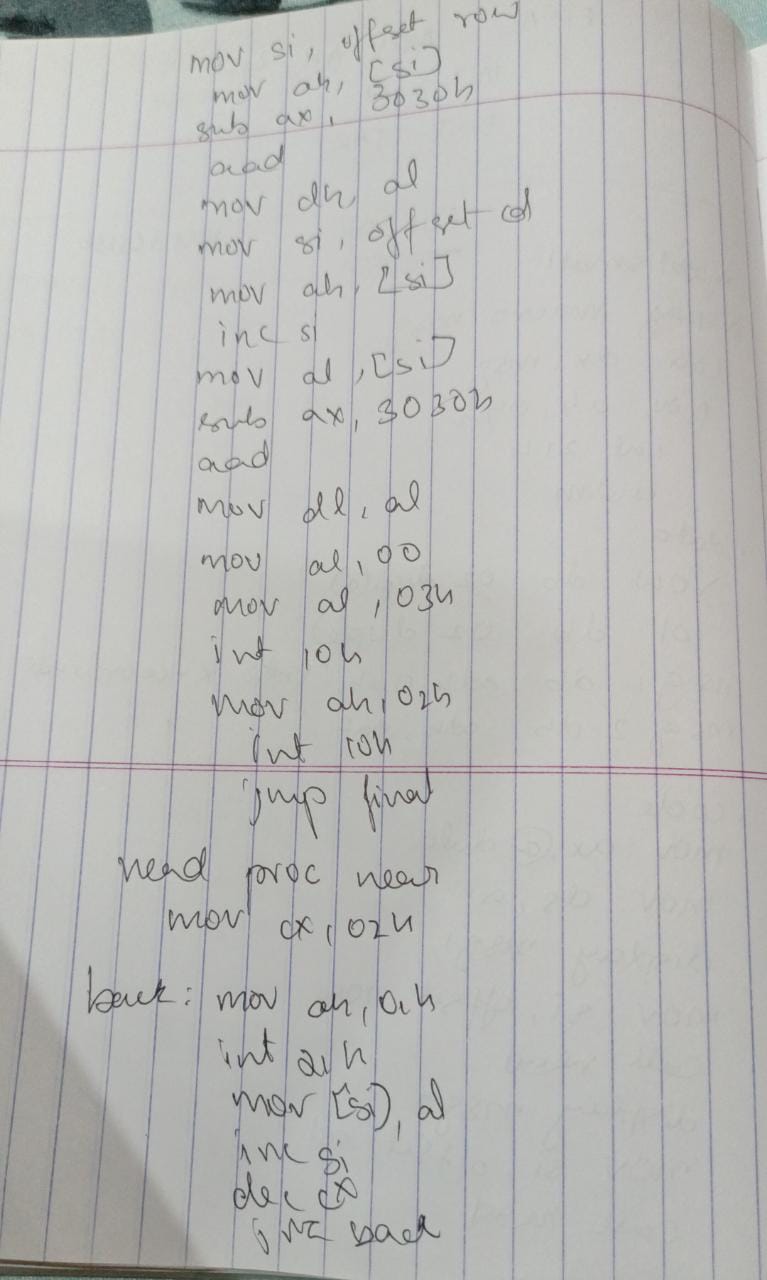 mov si, offset row
mov ah, [si]
sub ax, 3030h
aad
mov dh, al
mov si, offset col
mov ah, [si]
inc si
mov al, [si]
sub ax, 3030h
aad
mov dl, al
mov al, 00
mov al, 03h
int 10h
mov ah, 02h
int 10h
jmp final
read proc near
mov cx, 02h
back: mov ah, 01h
int 21h
mov [si], al
inc si
dec cx
jnz back